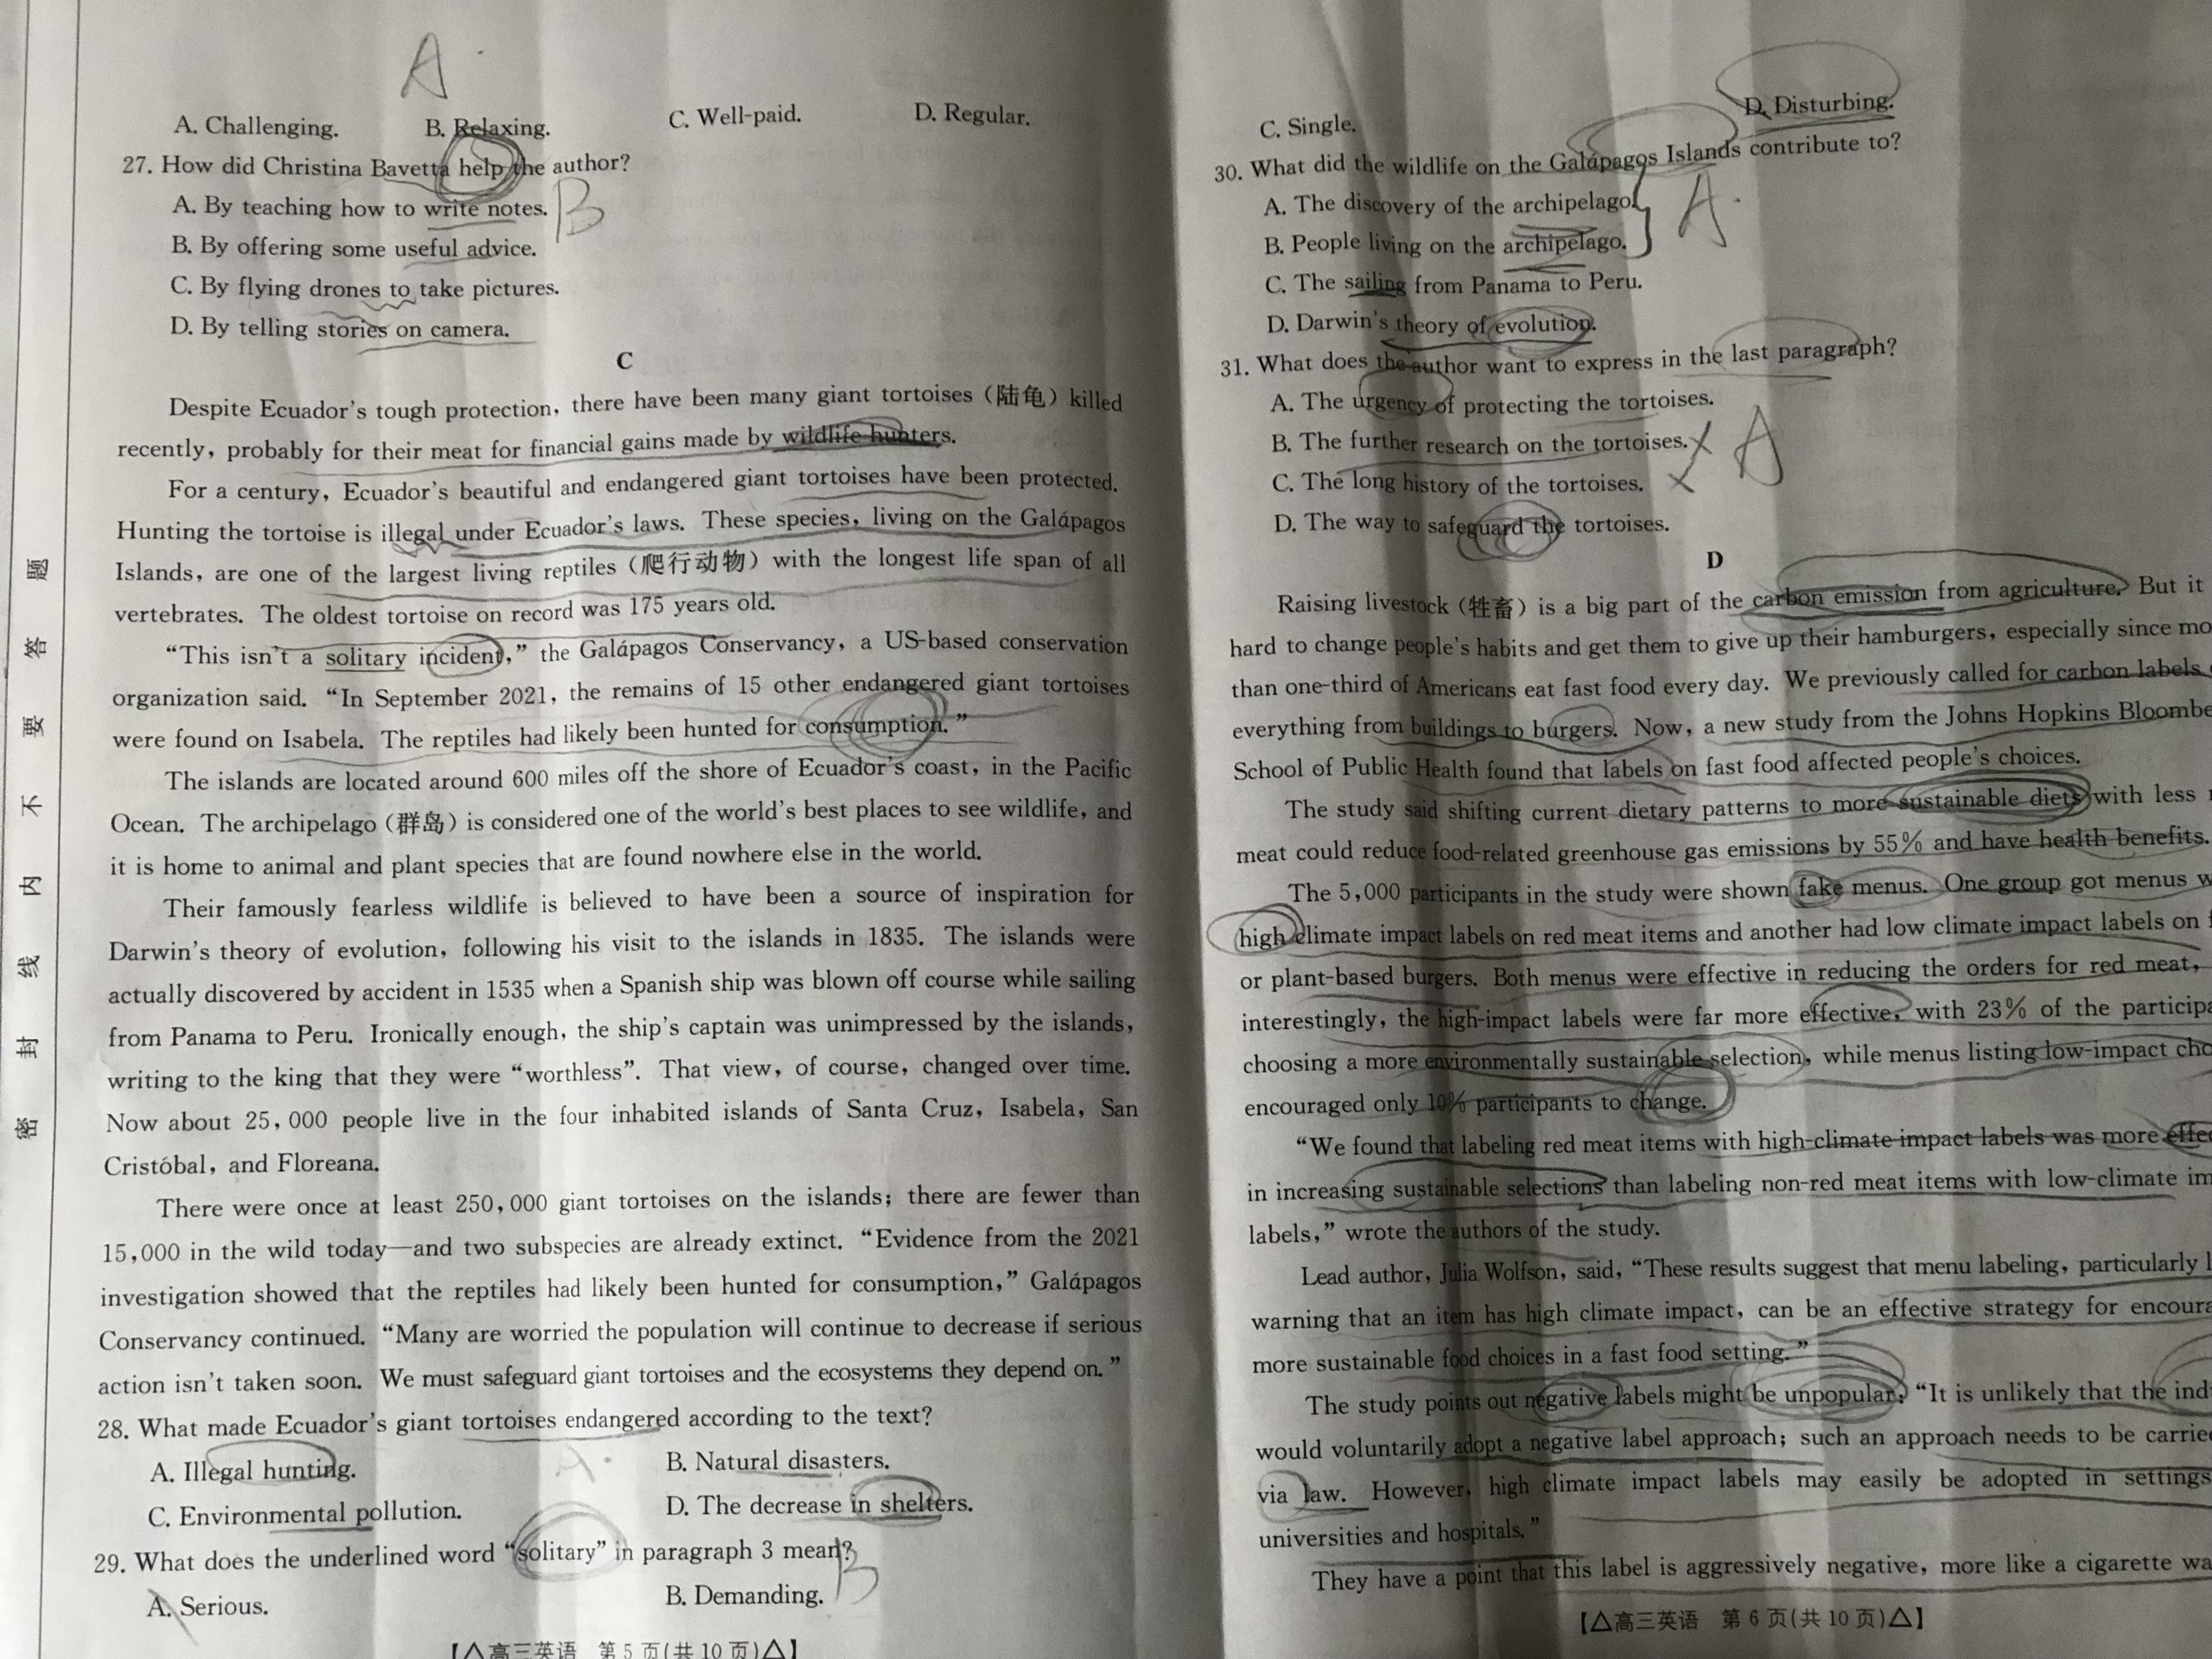 A
A. Challenging. B. Relaxing. C. Well-paid. D. Regular.
27. How did Christina Bavetta help the author?
A. By teaching how to write notes. B
B. By offering some useful advice.
C. By flying drones to take pictures.
D. By telling stories on camera.
C
Despite Ecuador's tough protection, there have been many giant tortoises (陆龟) killed
recently, probably for their meat for financial gains made by wildlife hunters.
For a century, Ecuador's beautiful and endangered giant tortoises have been protected.
Hunting the tortoise is illegal under Ecuador's laws. These species, living on the Galápagos
Islands, are one of the largest living reptiles (爬行动物) with the longest life span of all
vertebrates. The oldest tortoise on record was 175 years old.
“This isn't a solitary incident,” the Galápagos Conservancy, a US-based conservation
organization said. “In September 2021, the remains of 15 other endangered giant tortoises
were found on Isabela. The reptiles had likely been hunted for consumption.”
The islands are located around 600 miles off the shore of Ecuador's coast, in the Pacific
Ocean. The archipelago (群岛) is considered one of the world's best places to see wildlife, and
it is home to animal and plant species that are found nowhere else in the world.
Their famously fearless wildlife is believed to have been a source of inspiration for
Darwin's theory of evolution, following his visit to the islands in 1835. The islands were
actually discovered by accident in 1535 when a Spanish ship was blown off course while sailing
from Panama to Peru. Ironically enough, the ship's captain was unimpressed by the islands,
writing to the king that they were “worthless”. That view, of course, changed over time.
Now about 25,000 people live in the four inhabited islands of Santa Cruz, Isabela, San
Cristóbal, and Floreana.
There were once at least 250,000 giant tortoises on the islands; there are fewer than
15,000 in the wild today—and two subspecies are already extinct. “Evidence from the 2021
investigation showed that the reptiles had likely been hunted for consumption,” Galápagos
Conservancy continued. “Many are worried the population will continue to decrease if serious
action isn't taken soon. We must safeguard giant tortoises and the ecosystems they depend on.”
28. What made Ecuador's giant tortoises endangered according to the text?
A. Illegal hunting. A. B. Natural disasters.
C. Environmental pollution. D. The decrease in shelters.
29. What does the underlined word “solitary” in paragraph 3 mean? B
A. Serious. B. Demanding.
【△高三英语 第 5 页(共 10 页)△】
密 封 线 内 不 要 答 题
C. Single. D. Disturbing.
30. What did the wildlife on the Galápagos Islands contribute to?
A. The discovery of the archipelago. A.
B. People living on the archipelago.
C. The sailing from Panama to Peru.
D. Darwin's theory of evolution.
31. What does the author want to express in the last paragraph?
A. The urgency of protecting the tortoises.
B. The further research on the tortoises. A
C. The long history of the tortoises.
D. The way to safeguard the tortoises.
D
Raising livestock (牲畜) is a big part of the carbon emission from agriculture. But it
hard to change people's habits and get them to give up their hamburgers, especially since
than one-third of Americans eat fast food every day. We previously called for carbon labels
everything from buildings to burgers. Now, a new study from the Johns Hopkins
School of Public Health found that labels on fast food affected people's choices.
The study said shifting current dietary patterns to more sustainable diets with less
meat could reduce food-related greenhouse gas emissions by 55% and have health benefits.
The 5,000 participants in the study were shown fake menus. One group got menus
high climate impact labels on red meat items and another had low climate impact labels on
or plant-based burgers. Both menus were effective in reducing the orders for red meat,
interestingly, the high-impact labels were far more effective, with 23% of the
choosing a more environmentally sustainable selection, while menus listing low-impact
encouraged only 10% participants to change.
“We found that labeling red meat items with high-climate impact labels was more
in increasing sustainable selections than labeling non-red meat items with low-climate
labels,” wrote the authors of the study.
Lead author, Julia Wolfson, said, “These results suggest that menu labeling, particularly
warning that an item has high climate impact, can be an effective strategy for
more sustainable food choices in a fast food setting.”
The study points out negative labels might be unpopular: “It is unlikely that the
would voluntarily adopt a negative label approach; such an approach needs to be
via law. However, high climate impact labels may easily be adopted in settings
universities and hospitals.”
They have a point that this label is aggressively negative, more like a cigarette
【△高三英语 第 6 页(共 10 页)△】